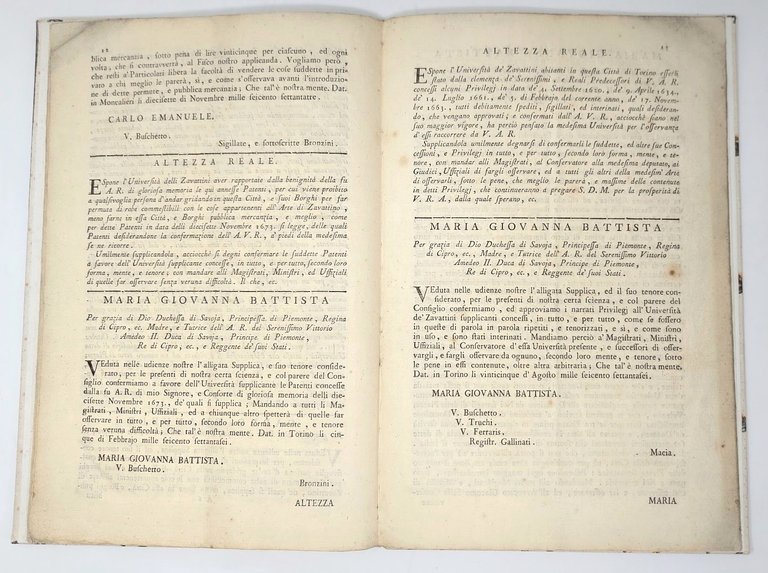 12
blica mercanzia, sotto pena di lire vinticinque per ciascuno, ed ogni
volta, che si contravverrà, al Fisco nostro applicanda. Vogliamo però,
che resti a' Particolari libera la facoltà di vendere le cose suddette in pri-
vato a chi meglio le parerà, sì, e come s'osservava avanti l'introduzio-
ne di dette permute, e pubblica mercanzia; Che tal'è nostra mente. Dat.
in Moncalieri li diecisette di Novembre mille seicento settantatre.
CARLO EMANUELE.
V. Buschetto.
Sigillate, e sottoscritte Bronzini.
ALTEZZA REALE.
Espone l'Università delli Zavattini aver rapportate dalla benignità della fu
A. R. di gloriosa memoria le qui annesse Patenti, per cui viene proibito
a qualsivoglia persona d'andar gridando in questa Città, e suoi Borghi per far
permuta di robe commestibili con le cose appartenenti all'Arte di Zavattino,
meno farne in essa Città, e Borghi pubblica mercanzia, e meglio, come
per dette Patenti in data delli diecisette Novembre 1673. si legge, delle quali
Patenti desiderandone la confermazione dell'A.V.R., a' piedi della medesima
se ne ricorre.
Umilmente supplicandola, acciocchè si degni confermare le suddette Patenti
a favore dell'Università supplicante concesse, in tutto, e per tutto, secondo loro
forma, mente, e tenore; con mandare alli Magistrati, Ministri, ed Uffiziali
di quelle far osservare senza veruna difficoltà. Il che, ec.
MARIA GIOVANNA BATTISTA
Per grazia di Dio Duchessa di Savoja, Principessa di Piemonte, Regina
di Cipro, ec. Madre, e Tutrice dell'A. R. del Serenissimo Vittorio
Amedeo II. Duca di Savoja, Principe di Piemonte,
Re di Cipro, ec., e Reggente de' suoi Stati.
Veduta nelle udienze nostre l'alligata Supplica, e suo tenore conside-
rato, per le presenti di nostra certa scienza, e col parere del Con-
siglio confermiamo a favore dell'Università supplicante le Patenti concesse
dalla fu A.R. di mio Signore, e Consorte di gloriosa memoria delli die-
cisette Novembre 1673., de' quali si supplica; Mandando a tutti li Ma-
gistrati, Ministri, Uffiziali, ed a chiunque altro spetterà di quelle far
osservare in tutto, e per tutto, secondo loro forma, mente, e tenore
senza veruna difficoltà; Che tal'è nostra mente. Dat. in Torino li cin-
que di Febbrajo mille seicento settantasei.
MARIA GIOVANNA BATTISTA.
V. Buschetto.
Bronzini.
ALTEZZA
ALTEZZA REALE.
Espone l'Università de' Zavattini abitanti in questa Città di Torino esserli
stato dalla clemenza de' Serenissimi, e Reali Predecessori di V. A. R.
concessi alcuni Privilegj in data de' 4. Settembre 1620., de' 9. Aprile 1634.,
de' 14. Luglio 1661., de' 5. di Febbrajo del corrente anno, de' 17. Novem-
bre 1663., tutti debitamente spediti, sigillati, ed interinati, quali desideran-
do, che vengano approvati; e confermati dall'A. V. R., acciocchè siano nel
suo maggior vigore, ha perciò pensato la medesima Università per l'osservanza
d'essi raccorrere da V. A. R.
Supplicandola umilmente degnarsi di confermarli le suddette, ed altre sue Con-
cessioni, e Privilegj in tutto, e per tutto, secondo loro forma, mente, e te-
nore, con mandar alli Magistrati, al Conservatore alla medesima deputato, ai
Giudici, Uffiziali di fargli osservare, ed a tutti gli altri della medesim'Arte
di osservarli, sotto le pene, che meglio le parerà, e massime delle contenute
in detti Privilegj, che continueranno a pregare S. D. M. per la prosperità di
V. R. A., dalla quale sperano, ec.
MARIA GIOVANNA BATTISTA
Per grazia di Dio Duchessa di Savoja, Principessa di Piemonte, Regina
di Cipro, ec., Madre, e Tutrice dell'A. R. del Serenissimo Vittorio
Amedeo II. Duca di Savoja, Principe di Piemonte,
Re di Cipro, ec., e Reggente de' suoi Stati.
Veduta nelle udienze nostre l'alligata Supplica, ed il suo tenore con-
siderato, per le presenti di nostra certa scienza, e col parere del
Consiglio confermiamo, ed approviamo i narrati Privilegj all'Università
de' Zavattini supplicanti concessi, in tutto, e per tutto, come se fossero
in queste di parola in parola ripetiti, e tenorizzati, e sì, e come sono
in uso, e sono stati interinati. Mandiamo perciò a' Magistrati, Ministri,
Uffiziali, al Conservatore d'essa Università presente, e successori di osser-
vargli, e fargli osservare da ognuno, secondo loro mente, e tenore, sotto
le pene in essi contenute, oltre altra arbitraria; Che tal'è nostra mente.
Dat. in Torino li vinticinque d'Agosto mille seicento settantasei.
MARIA GIOVANNA BATTISTA.
V. Buschetto.
V. Truchi.
V. Ferraris.
Registr. Gallinati.
Macia.
MARIA